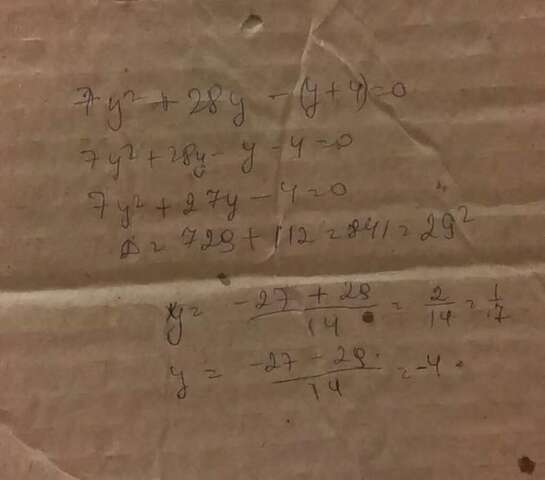 7y² + 28y - (y+4)=0
7y²+28y - y - 4=0
7y² + 27y - 4=0
D= 729 + 112 = 841 = 29²
y= (-27 + 29)/14 = 2/14 = 1/7
y = (-27 - 29)/14 = -4.